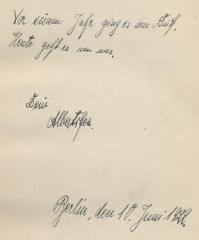 Vor einem Jahr ging es um Dich.
Heute geht es um uns.
Dein
Berlin, den 10. Juni